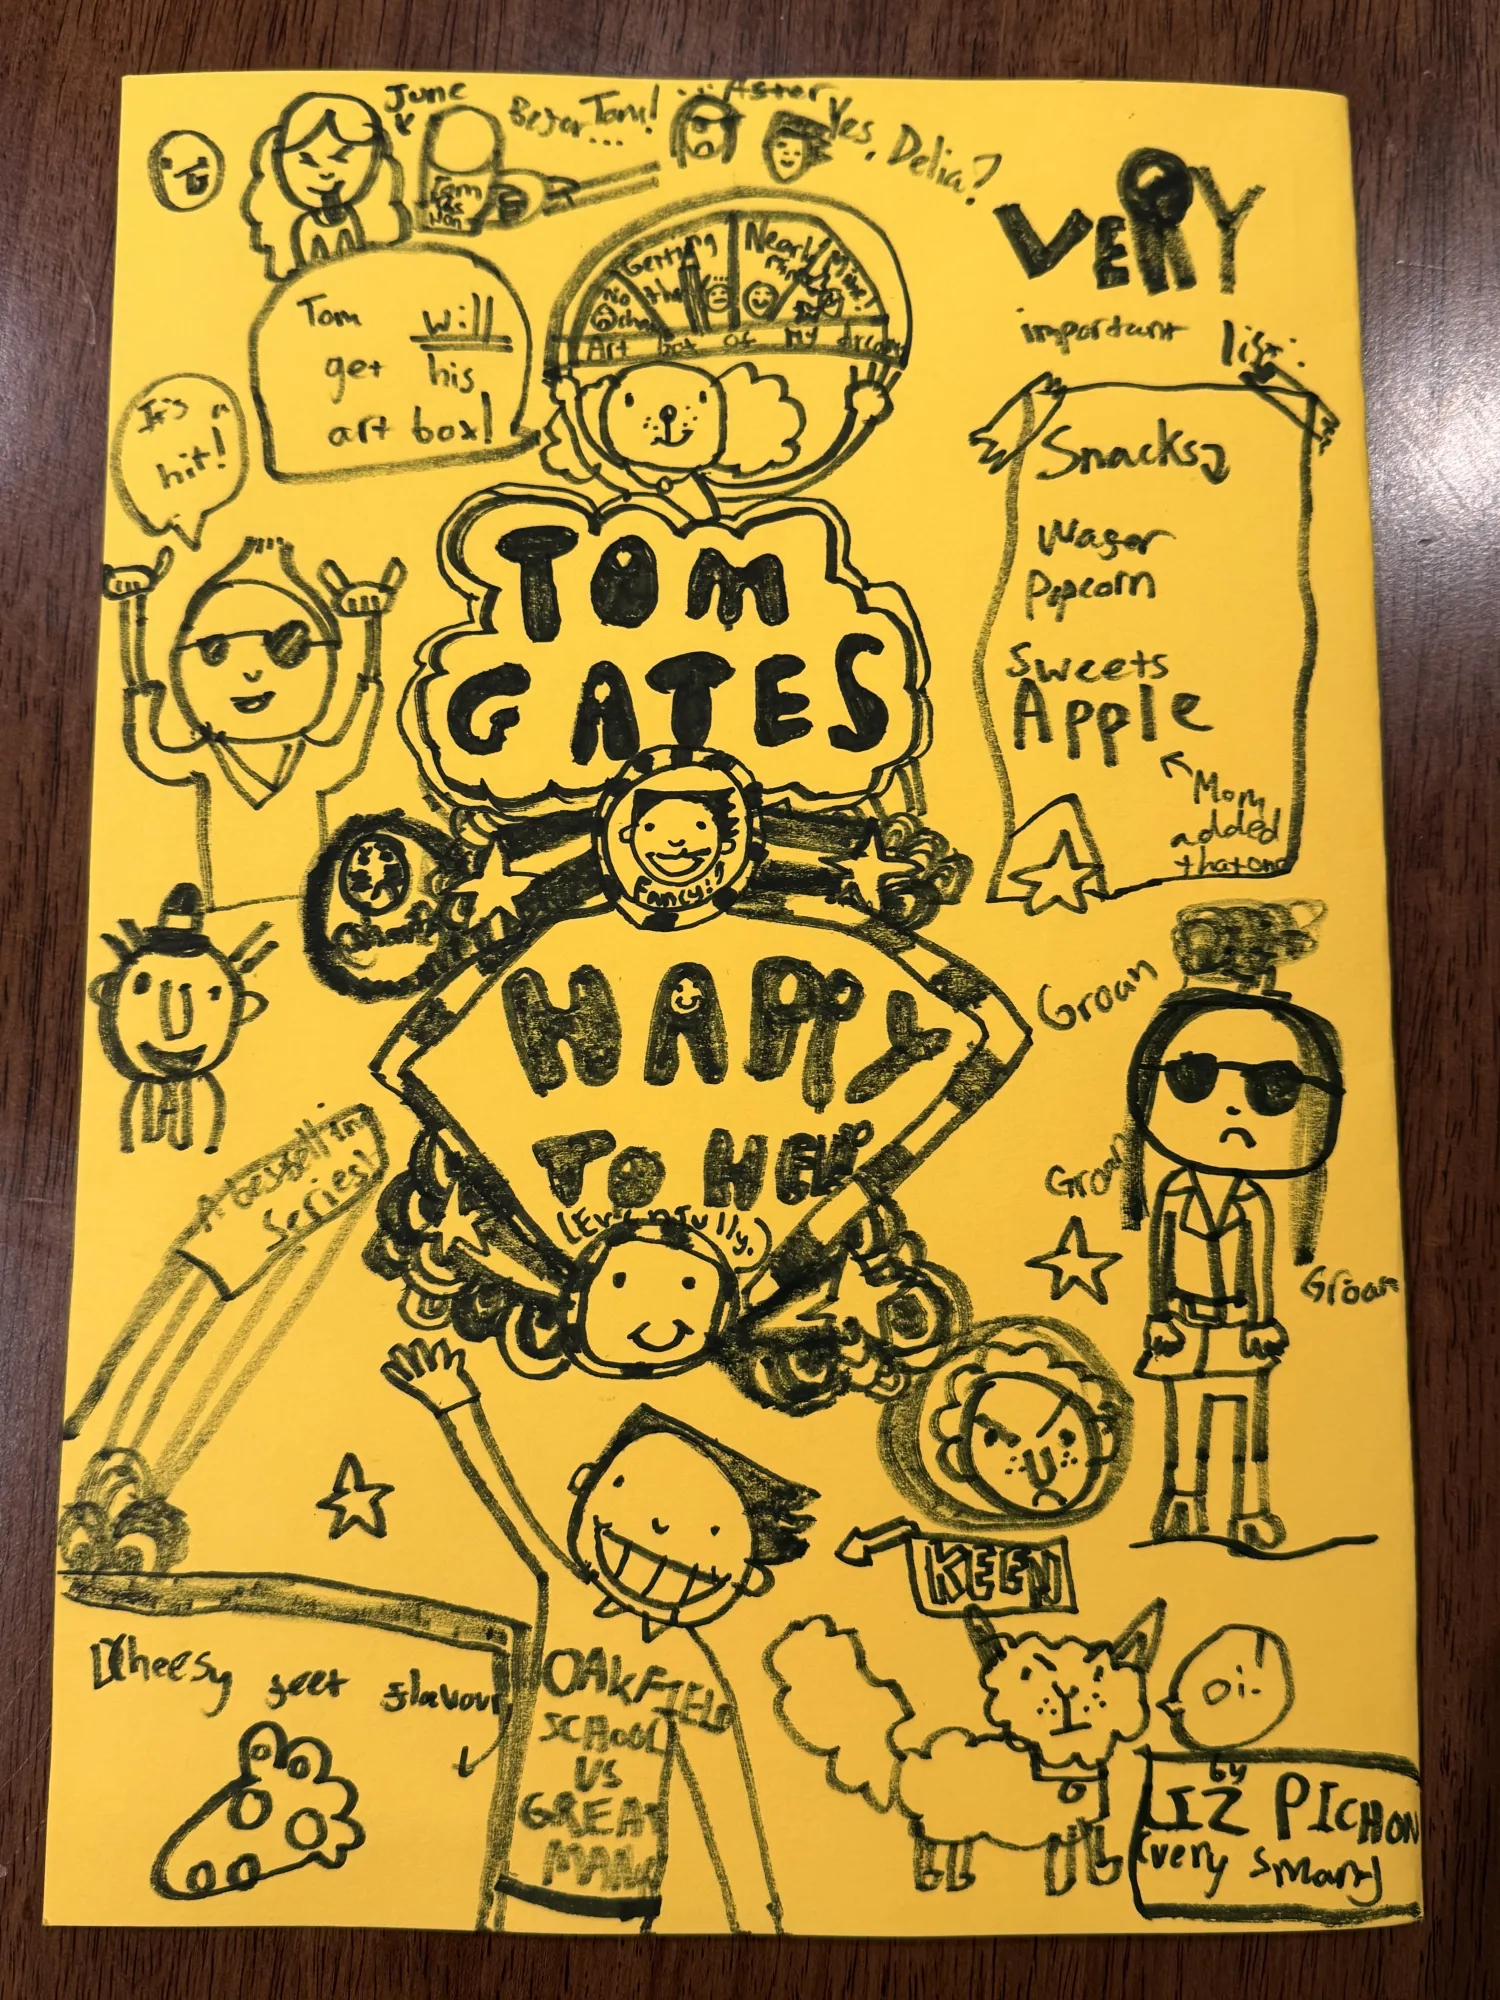 June
Tom!
Aster
Yes, Delia?
Tom will
get his
art box!
It's a
hit!
No
Getting
Nearly
Mine!
Art box of my dreams
VERY
important list:
Snacks
Wafer
Popcorn
Sweets
Apple
Mom
added
that one
TOM
GATES
Fancy!?
HAPPY
TO HELP
(Eventually.)
A bestselling
Series!
Groan
Groan
Groan
KEEN
Cheesy feet flavour
OAKFIELD
SCHOOL
IS
GREAT
MAN
Oi.
by
LIZ PICHON
(very smart)